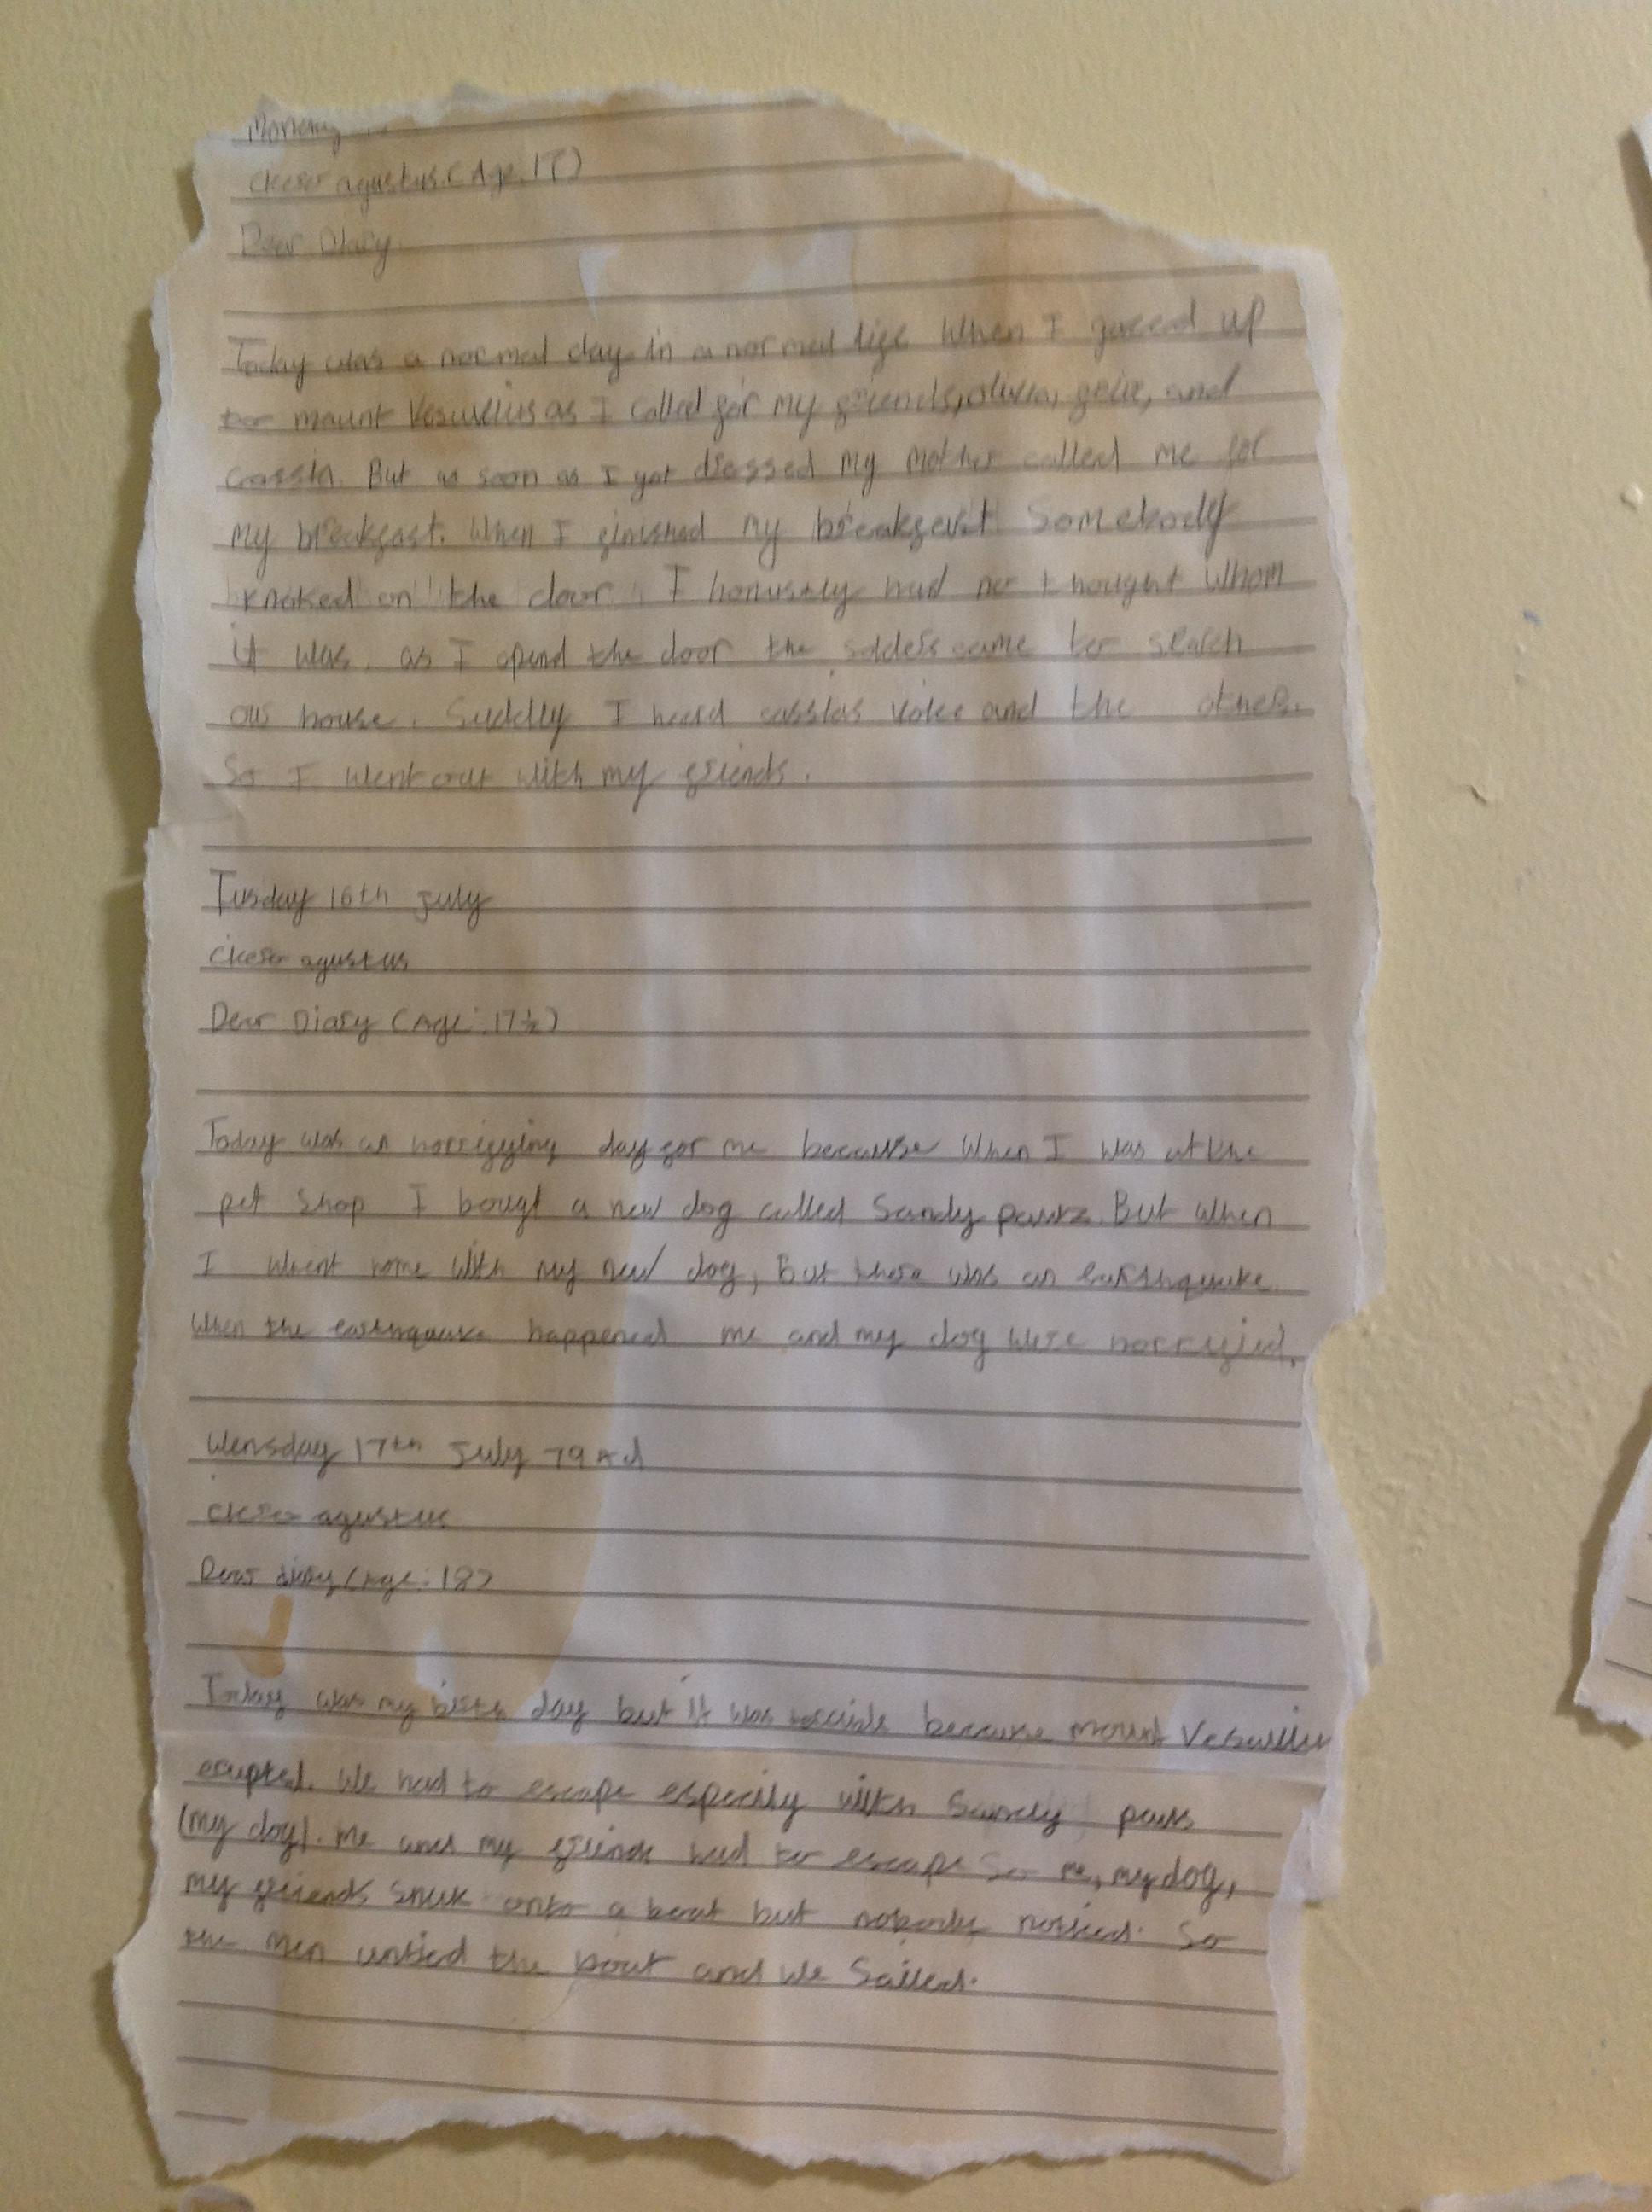 Monday
agustus (Age: 17)
Dear Diary
Today was a normal day in a normal life When I gazed up
to mount Vesuvius as I called for my friends, olivia, and
But as soon as I got dressed my mother called me for
my breakfast. When I finished my breakfast Somebody
knoked on the door. I honustly had no thought Whom
it was. as I opend the door the solders came to search
our house. Suddlly I heard cassias voice and the others.
So I went out with my friends.
Tusday 16th July
agustus
Dear Diary (Age: 17½)
Today was an horrifying day for me because When I was at the
pet Shop I bougt a new dog called Sandy paws. But when
I whent home with my new dog, But there was an earthquake.
When the earthquake happened me and my dog were horrified.
Wensday 17th July 79 Ad
agustus
Dear diary (Age: 18)
Today was my birth day but it was because mount
erupted. We had to escape especily with Sandy paws
(my dog). Me and my friends had to escape So me, my dog,
my friends snuk onto a boat but nobody noticed. So
the men untied the boat and we Sailed.